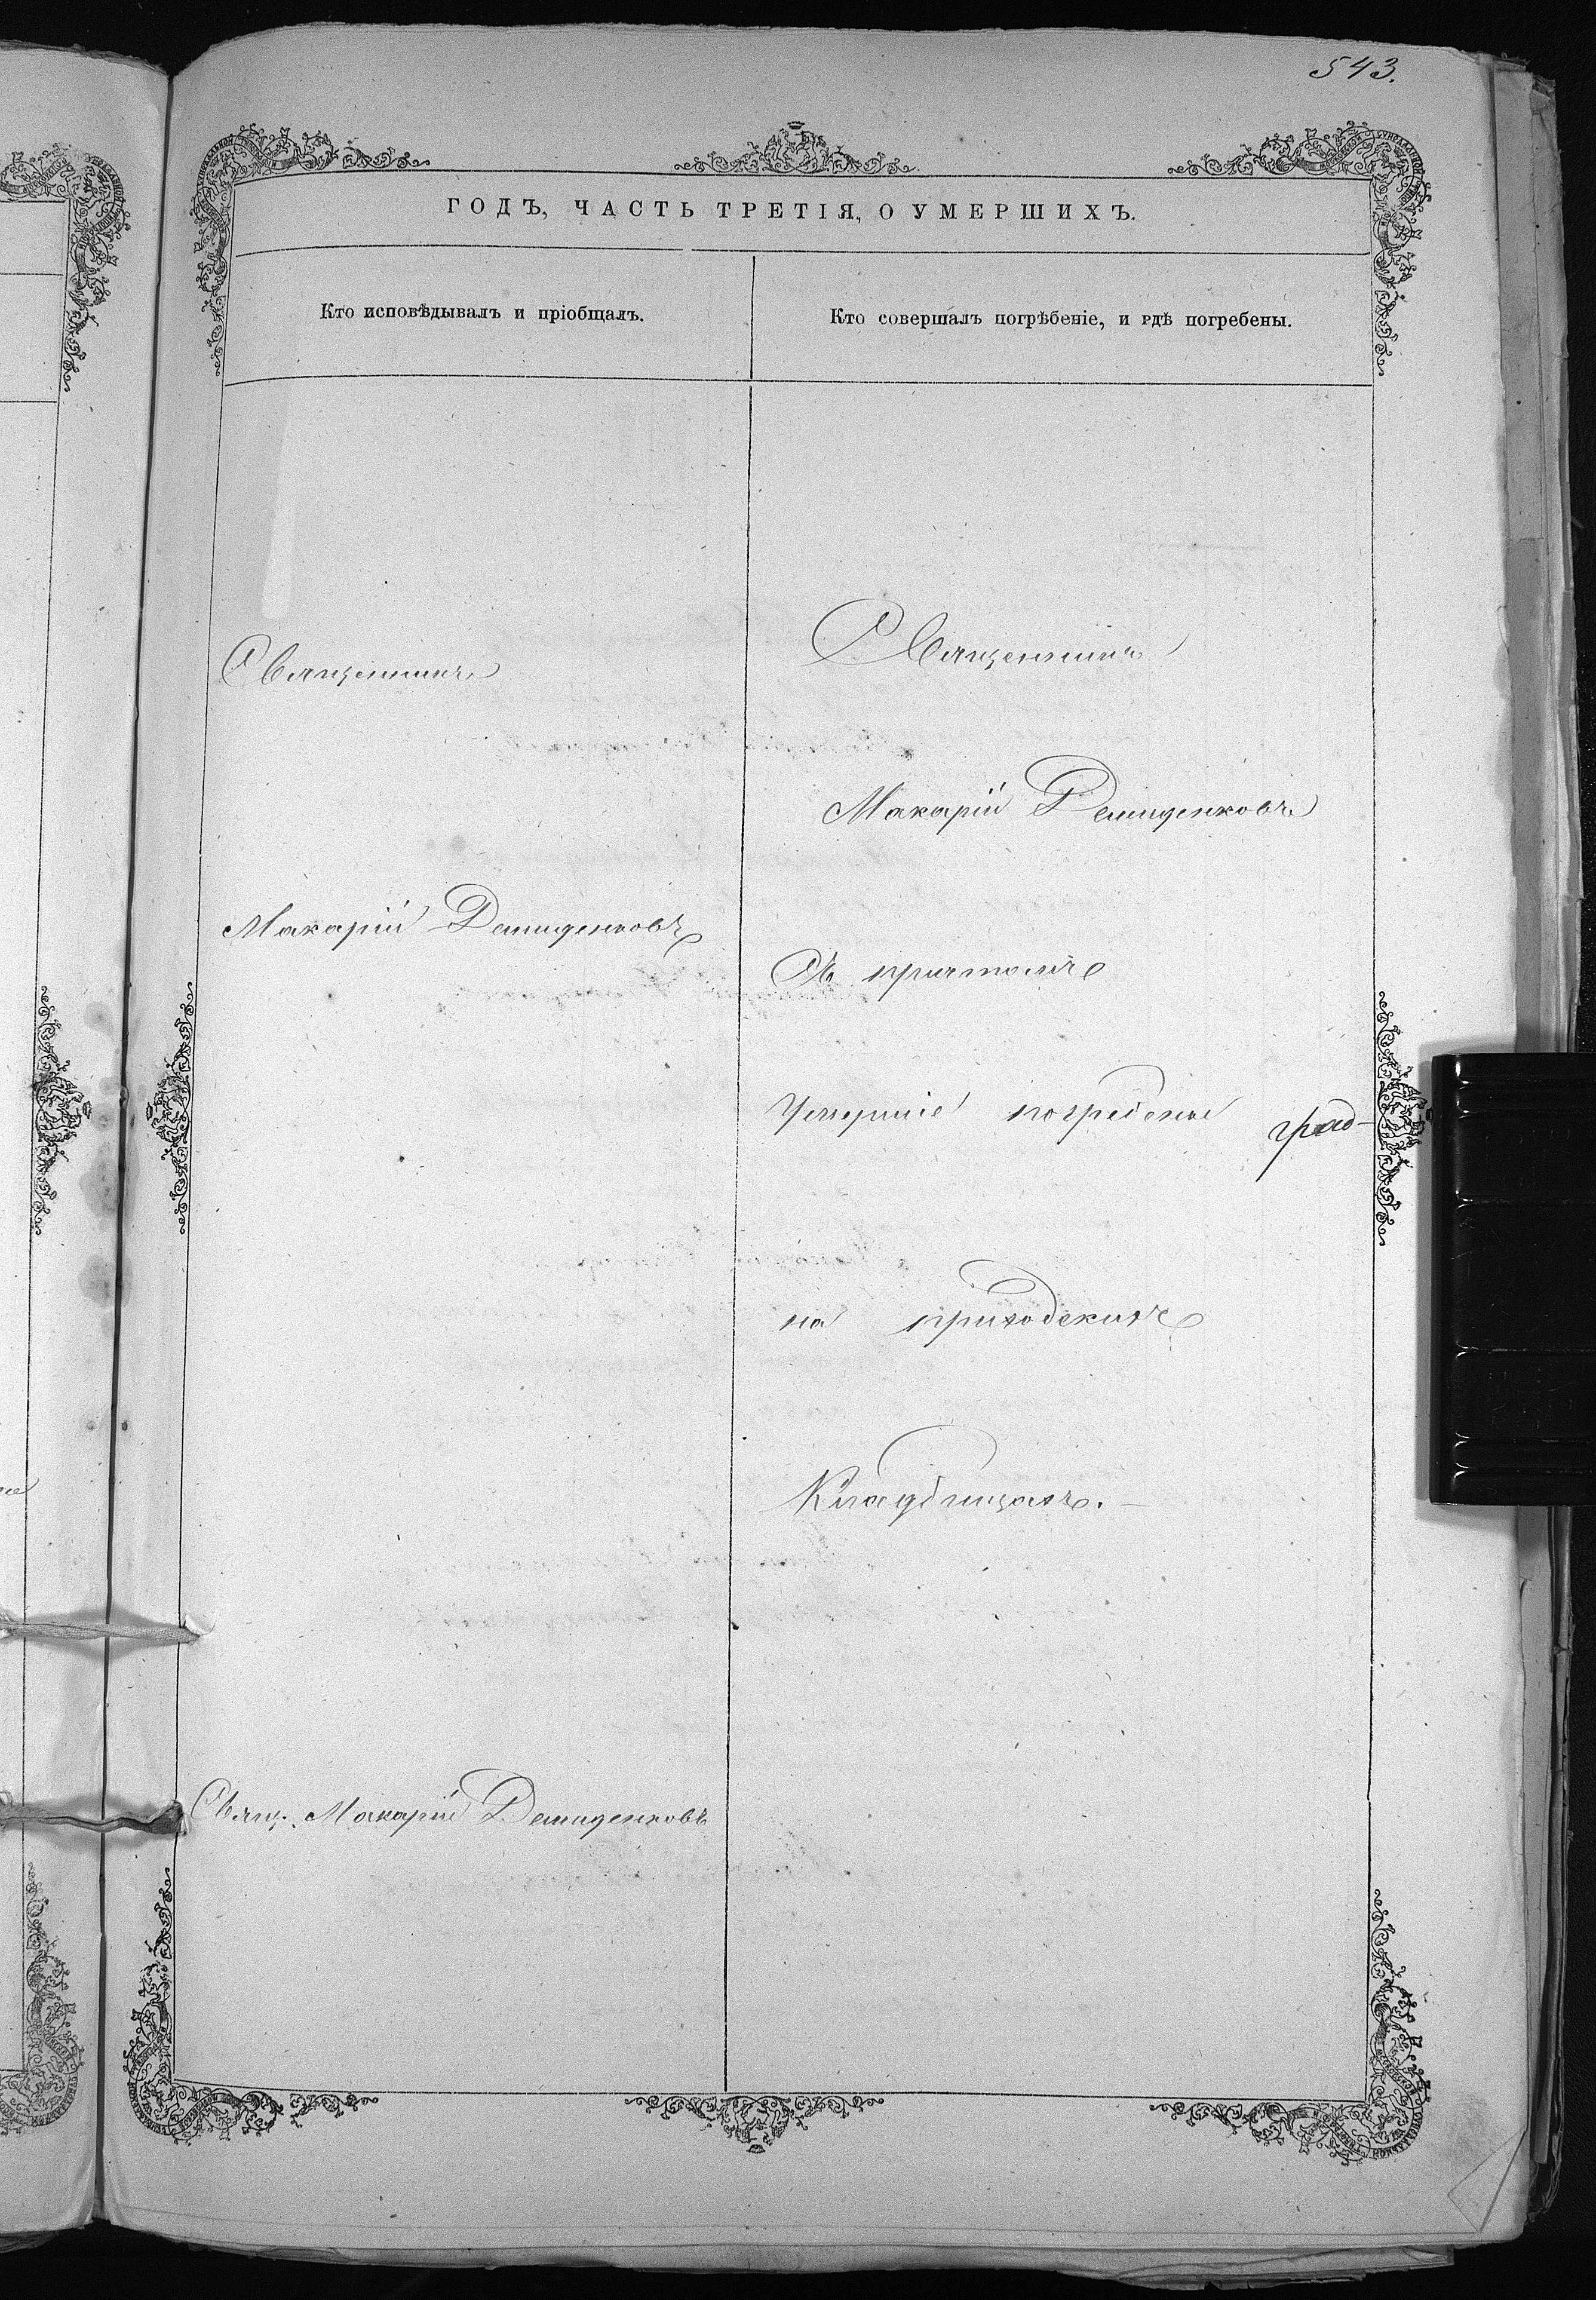 543.
ГОДЪ, ЧАСТЬ ТРЕТІЯ, О УМЕРШИХЪ.
Кто исповѣдывалъ и пріобщалъ.
Священникъ
Макарій Демиденковъ
Свящ. Макарій Демиденковъ
Кто совершалъ погрѣбеніе, и гдѣ погребены.
Священникъ
Макарій Демиденковъ
Съ причтомъ
Умершіе погребены
на приходскихъ
Кладбищахъ.